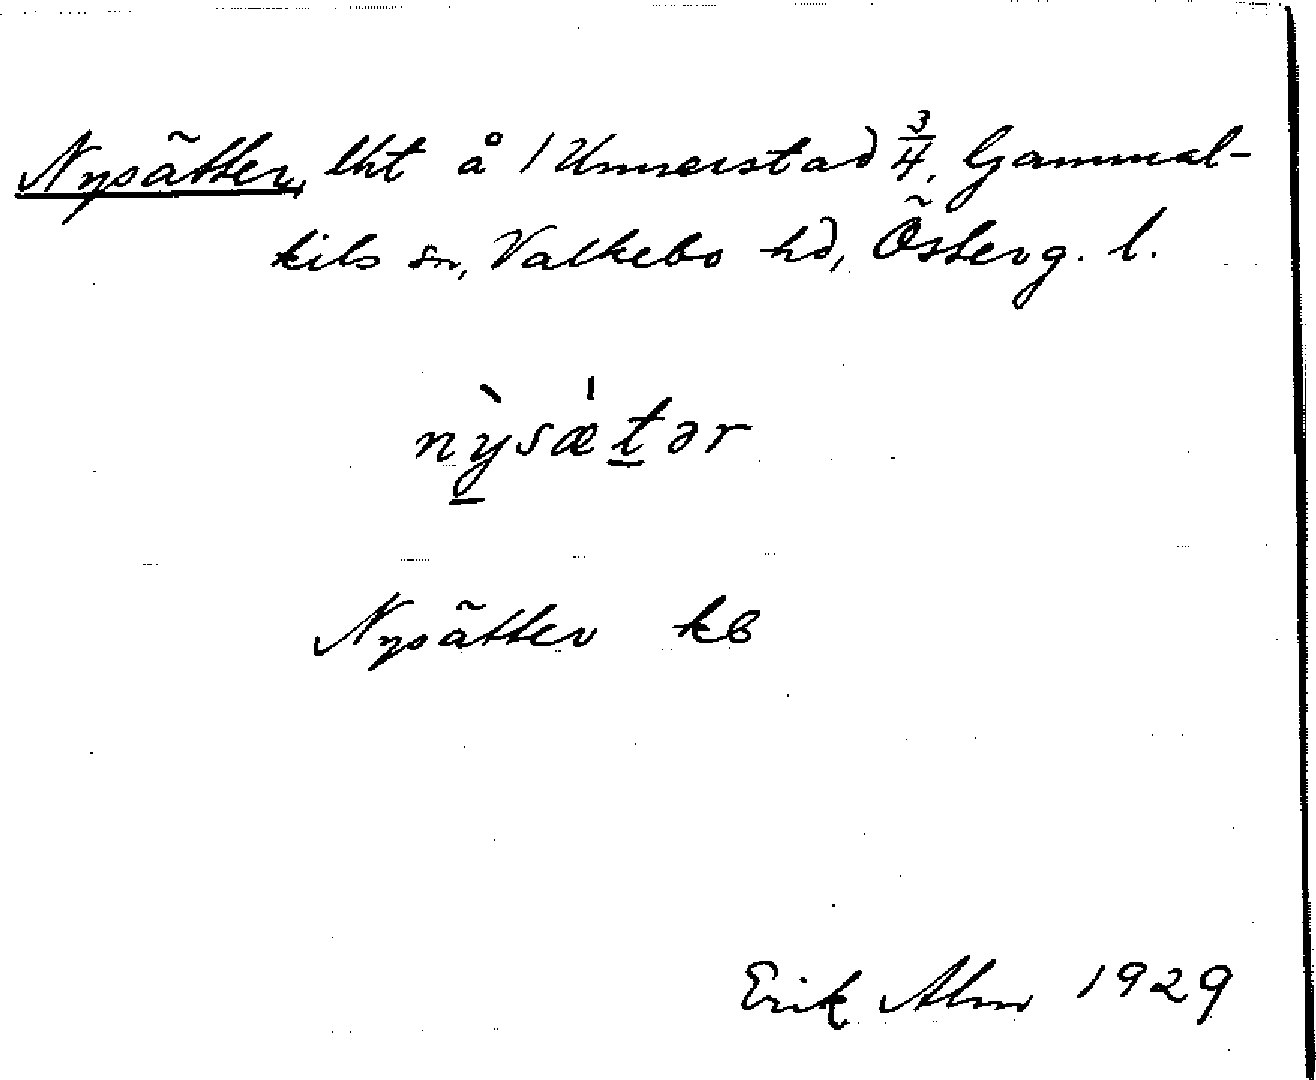 Nysätter, lht å / Unnerstad 3/4, Gammal-
kils sn, Valkebo hd, Österg. l.
nỳsæ̍tər
Nysätter kb
Erik Alm 1929